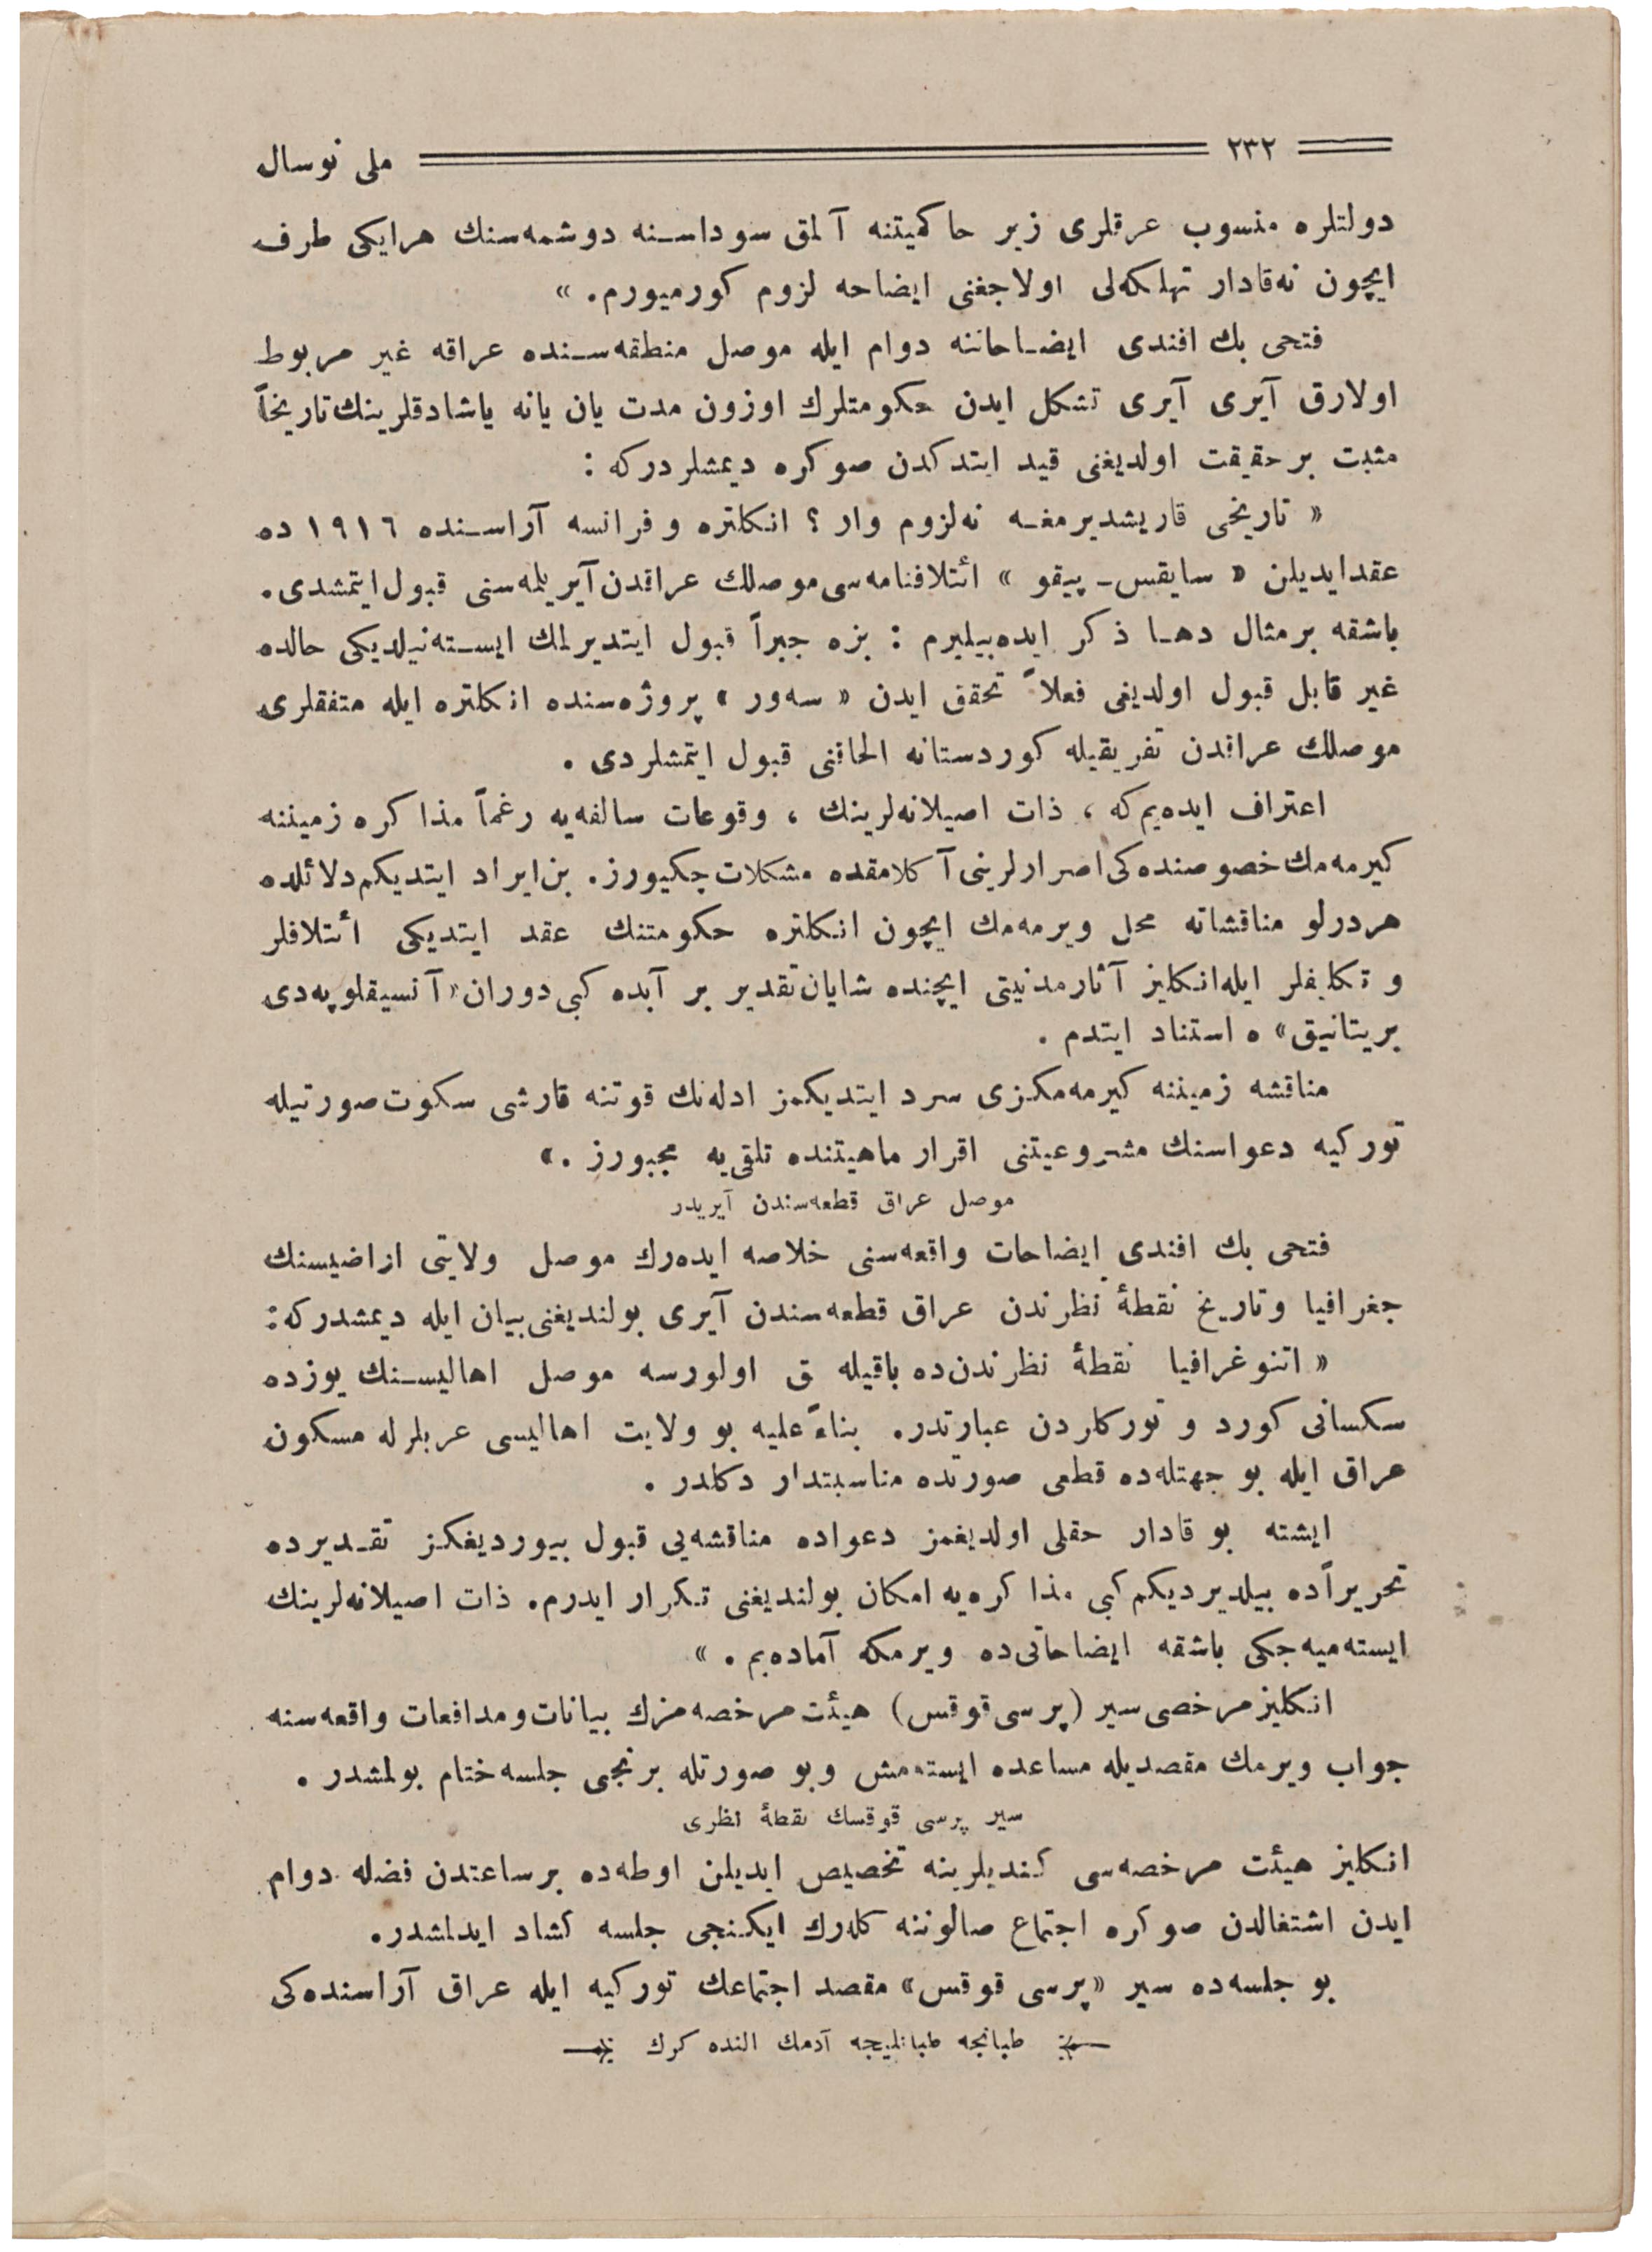 ٢٣٢ ملی نوسال
دولتلره منسوب عرقلری زیر حاکمیتنه آلمق سوداسنه دوشمه‌سنك هرایکی طرف
ایچون نه‌قادار تهلکه‌لی اولاجغنی ایضاحه لزوم کورمیورم. »
فتحی بك افندی ایضاحاتنه دوام ایله موصل منطقه‌سنده عراقه غیر مربوط
اولارق آیری آیری تشکل ایدن حکومتلرك اوزون مدت یان یانه یاشادقلرینك تاریخاً
مثبت برحقیقت اولدیغنی قید ایتدکدن صوکره دیمشلردرکه :
« تاریخی قاریشدیرمغه نه‌لزوم وار ؟ انکلتره و فرانسه آراسنده ١٩١٦ ده
عقدایدیلن « سایقس ـ پیقو » ائتلافنامه‌سی موصلك عراقدن آیریلمه‌سنی قبول ایتمشدی.
باشقه برمثال دها ذکر ایده‌بیلیرم : بزه جبراً قبول ایتدیرلمك ایسته‌نیلدیکی حالده
غیر قابل قبول اولدیغی فعلاً تحقق ایدن « سه‌ور » پروژه‌سنده انکلتره ایله متفقلری
موصلك عراقدن تفریقیله کوردستانه الحاقنی قبول ایتمشلردی .
اعتراف ایده‌یم‌که ، ذات اصیلانه‌لرینك ، وقوعات سالفه‌یه رغماً مذاکره زمیننه
کیرمه‌مك خصوصنده‌کی اصرارلرینی آکلامقده مشکلات چکیورز. بن ایراد ایتدیکم دلائلده
هردرلو مناقشاته محل ویرمه‌مك ایچون انکلتره حکومتنك عقد ایتدیکی ائتلافلر
و تکلیفلر ایله انکلیز آثارمدنیتی ایچنده شایان‌تقدیر بر آبده کبی دوران « آنسیقلوپه‌دی
بریتانیق» ه استناد ایتدم .
مناقشه زمیننه کیرمه‌مکزی سرد ایتدیکمز ادله‌نك قوتنه قارشی سکوت صورتیله
تورکیه دعواسنك مشروعیتنی اقرار ماهیتنده تلقی‌یه مجبورز .»
موصل عراق قطعه‌سندن آیریدر
فتحی بك افندی ایضاحات واقعه‌سنی خلاصه ایده‌رك موصل ولایتی اراضیسنك
جغرافیا وتاریخ نقطهٔ نظرندن عراق قطعه‌سندن آیری بولندیغنی بیان ایله دیمشدرکه:
« اتنوغرافیا نقطهٔ نظرندن‌ده باقیله ق اولورسه موصل اهالیسنك یوزده
سکسانی کورد و تورکلردن عبارتدر. بناءً علیه بو ولایت اهالیسی عربلرله مسکون
عراق ایله بو جهتله‌ده قطعی صورتده مناسبتدار دکلدر .
ایشته بو قادار حقلی اولدیغمز دعواده مناقشه‌یی قبول بیوردیغکز تقدیرده
تحریراً‌ده بیلدیردیکم کبی مذاکره‌یه امکان بولندیغنی تکرار ایدرم. ذات اصیلانه‌لرینك
ایسته‌میه‌جکی باشقه ایضاحاتی‌ده ویرمکه آماده‌یم . »
انکلیز مرخصی سیر (پرسی قوقس) هیئت مرخصه‌مزك بیانات ومدافعات واقعه‌سنه
جواب ویرمك مقصدیله مساعده ایسته‌مش وبو صورتله برنجی جلسه ختام بولمشدر .
سیر پرسی قوقسك نقطهٔ نظری
انکلیز هیئت مرخصه‌سی کندیلرینه تخصیص ایدیلن اوطه‌ده برساعتدن فضله دوام
ایدن اشتغالدن صوکره اجتماع صالوننه کله‌رك ایکنجی جلسه کشاد ایدلمشدر.
بو جلسه‌ده سیر «پرسی قوقس» مقصد اجتماعك تورکیه ایله عراق آراسنده‌کی
طبانجه طبانلیجه آدمك النده کرك